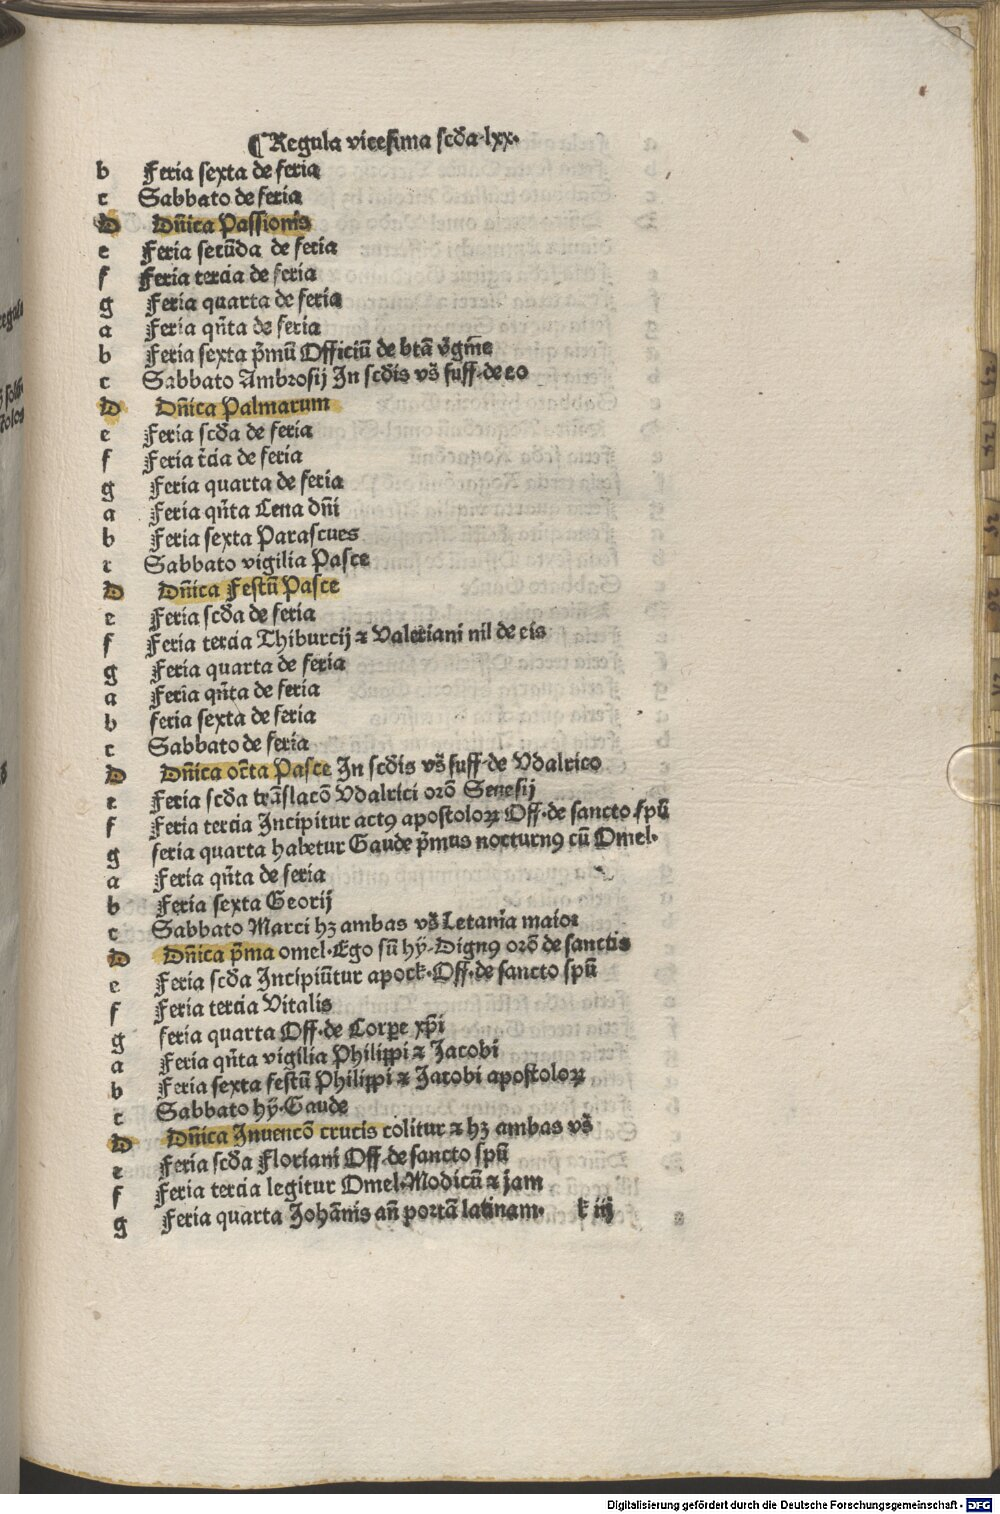 ¶Regula vicesima scđa·lxx·
b Feria sexta de feria
c Sabbato de feria
D Dñica Passionis
e Feria secũda de feria
f Feria tercia de feria
g Feria quarta de feria
a Feria qñta de feria
b Feria sexta p̃mũ Officiũ de btã v̄gĩne
c Sabbato Ambrosij In scđis vs̃ suff·de eo
D Dñica Palmarum
e Feria scđa de feria
f Feria t̃cia de feria
g Feria quarta de feria
a Feria qñta Cena dñi
b Feria sexta Parasceues
c Sabbato vigilia Pasce
D Dñica Festũ Pasce
e Feria scđa de feria
f Feria tercia Thiburcij ⁊ Valeriani nil de eis
g Feria quarta de feria
a Feria qñta de feria
b feria sexta de feria
c Sabbato de feria
D Dñica octa Pasce In scđis vs̃ suff·de Vdalrico
e Feria scđa trãslacõ Vdalrici orõ Senesij
f Feria tercia Incipitur actꝰ apostoloꝝ Off·de sancto spũ
g feria quarta habetur Gaude p̃mus nocturnꝰ cũ Omel·
a Feria qñta de feria
b Feria sexta Georij
c Sabbato Marci hꝫ ambas vs̃ Letania maior
D Dñica p̃ma omel·Ego sũ hỹ·Dignꝰ orõ de sanctis
e Feria scđa Incipiũtur apocł·Off·de sancto spũ
f Feria tercia Vitalis
g feria quarta Off·de Corpe xp̃i
a Feria qñta vigilia Philippi ⁊ Jacobi
b Feria sexta festũ Philippi ⁊ Jacobi apostoloꝝ
c Sabbato hỹ·Gaude
D Dñica Inuencõ crucis colitur ⁊ hꝫ ambas vs̃
e Feria scđa Floriani Off·de sancto spũ
f Feria tercia legitur Omel·Modicũ ⁊ jam
g Feria quarta Johãnis añ portã latinam· k iij
Digitalisierung gefördert durch die Deutsche Forschungsgemeinschaft - DFG